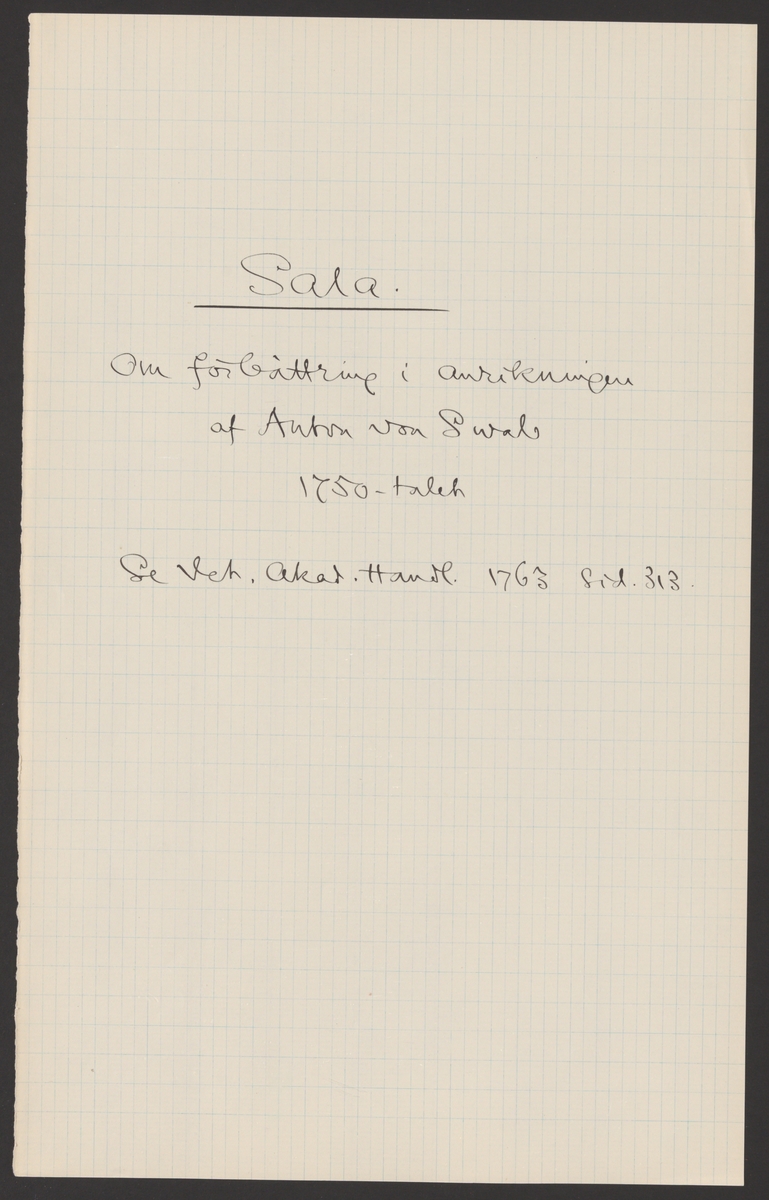 Sala.
Om förbättring i anrikningen
af Anton von Swab
1750-talet
Se Vet. Akad. Handl. 1763 Sid. 313.